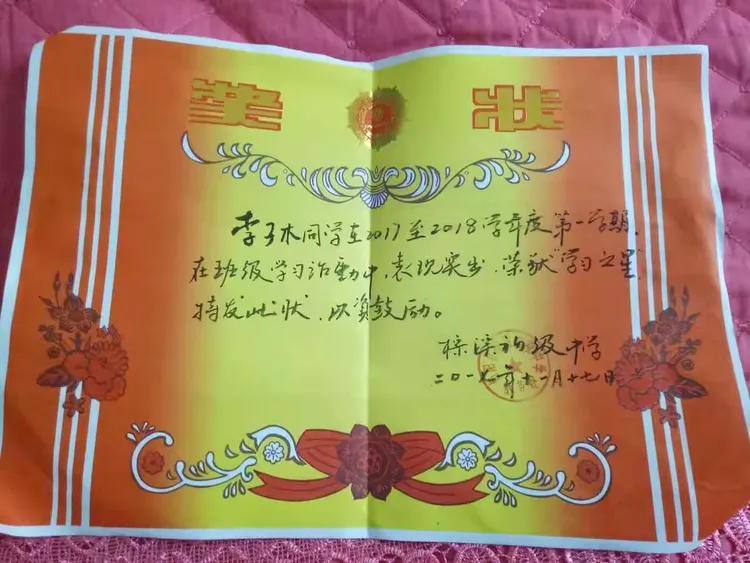 奖状
李子木同学在2017至2018学年度第一学期,
在班级学习活動中,表现突出,荣获"学习之星"
特发此状,以资鼓励。
棕溪初级中学
二〇一七年十一月十七日